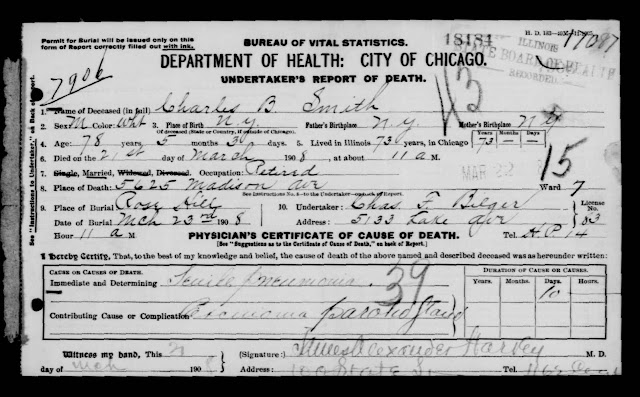 Permit for Burial will be issued only on this
form of Report correctly filled out with ink.
BUREAU OF VITAL STATISTICS.
18184
ILLINOIS
STATE BOARD OF HEALTH
RECORDED
DEPARTMENT OF HEALTH: CITY OF CHICAGO.
UNDERTAKER'S REPORT OF DEATH.
7906
43
1. Name of Deceased (in full) Charles B Smith
2. Sex M Color Wht 3. Place of Birth N.Y. Father's Birthplace N.Y. Mother's Birthplace N.Y.
(If deceased (State or Country, if outside of Chicago).
4. Age: 78 Years 5 months 3 days 5. Lived in Illinois 73 years, in Chicago 73 Years — Months — Days
6. Died on the 21st day of March 1908, at about 11 a M.
7. Single, Married, Widowed, Divorced. Occupation Retired
15
8. Place of Death: 5625 Madison Ave Ward 7
9. Place of Burial Rose Hill 10. Undertaker: Chas. F. Bilger License No. 83
Date of Burial Mch 23rd 1908 Address: 5133 Lake Ave
Hour 11 a M. Tel. H.P 14
See "Instructions to Undertaker," on Back of Report.
PHYSICIAN'S CERTIFICATE OF CAUSE OF DEATH.
[See "Suggestions as to the Certificate of Cause of Death," on back of Report.]
I hereby Certify, That, to the best of my knowledge and belief, the cause of death of the above named and described deceased was as hereunder written:
CAUSE OR CAUSES OF DEATH. DURATION OF CAUSES.
Years. Months. Days. Hours.
Immediate and Determining Senile pneumonia 10
39
Contributing Cause or Complication Carcinoma parotid gland
Witness my hand, This 21 (Signature:) James Alexander Harvey M. D.
day of Mch 1908 Address: State St Tel.